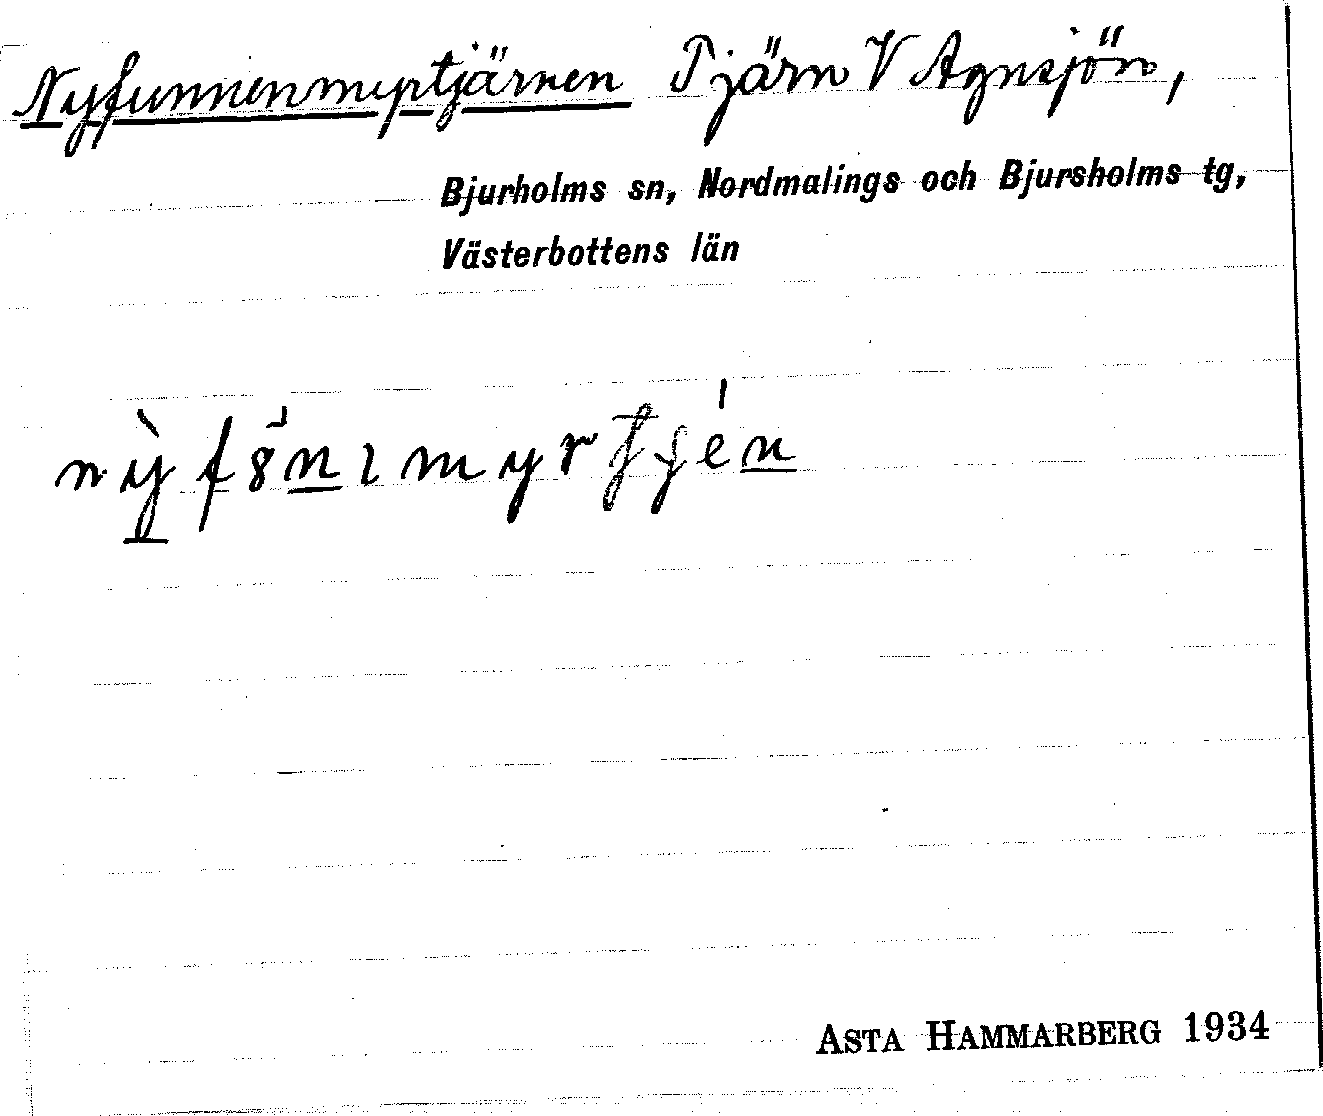 Nyfunnenmyrtjärnen Tjärn V Agnsjön,
Bjurholms sn, Nordmalings och Bjursholms tg,
Västerbottens län
ASTA HAMMARBERG 1934